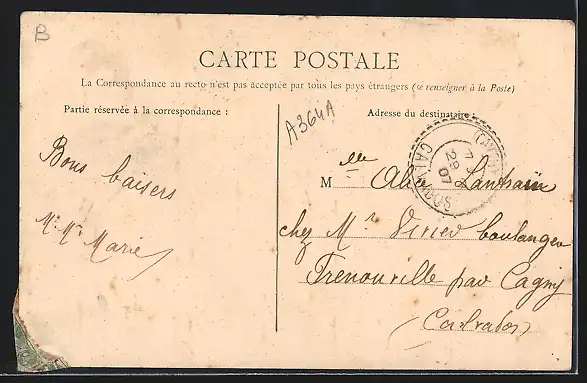 B
CARTE POSTALE
La Correspondance au recto n'est pas acceptée par tous les pays étrangers (se renseigner à la Poste)
Partie réservée à la correspondance :
Adresse du destinataire
A364A
Bons baisers
Marie
Mlle
chez Mr boulanger
Frenouville par Cagny
(Calvados)
7
29
07
CALVADOS